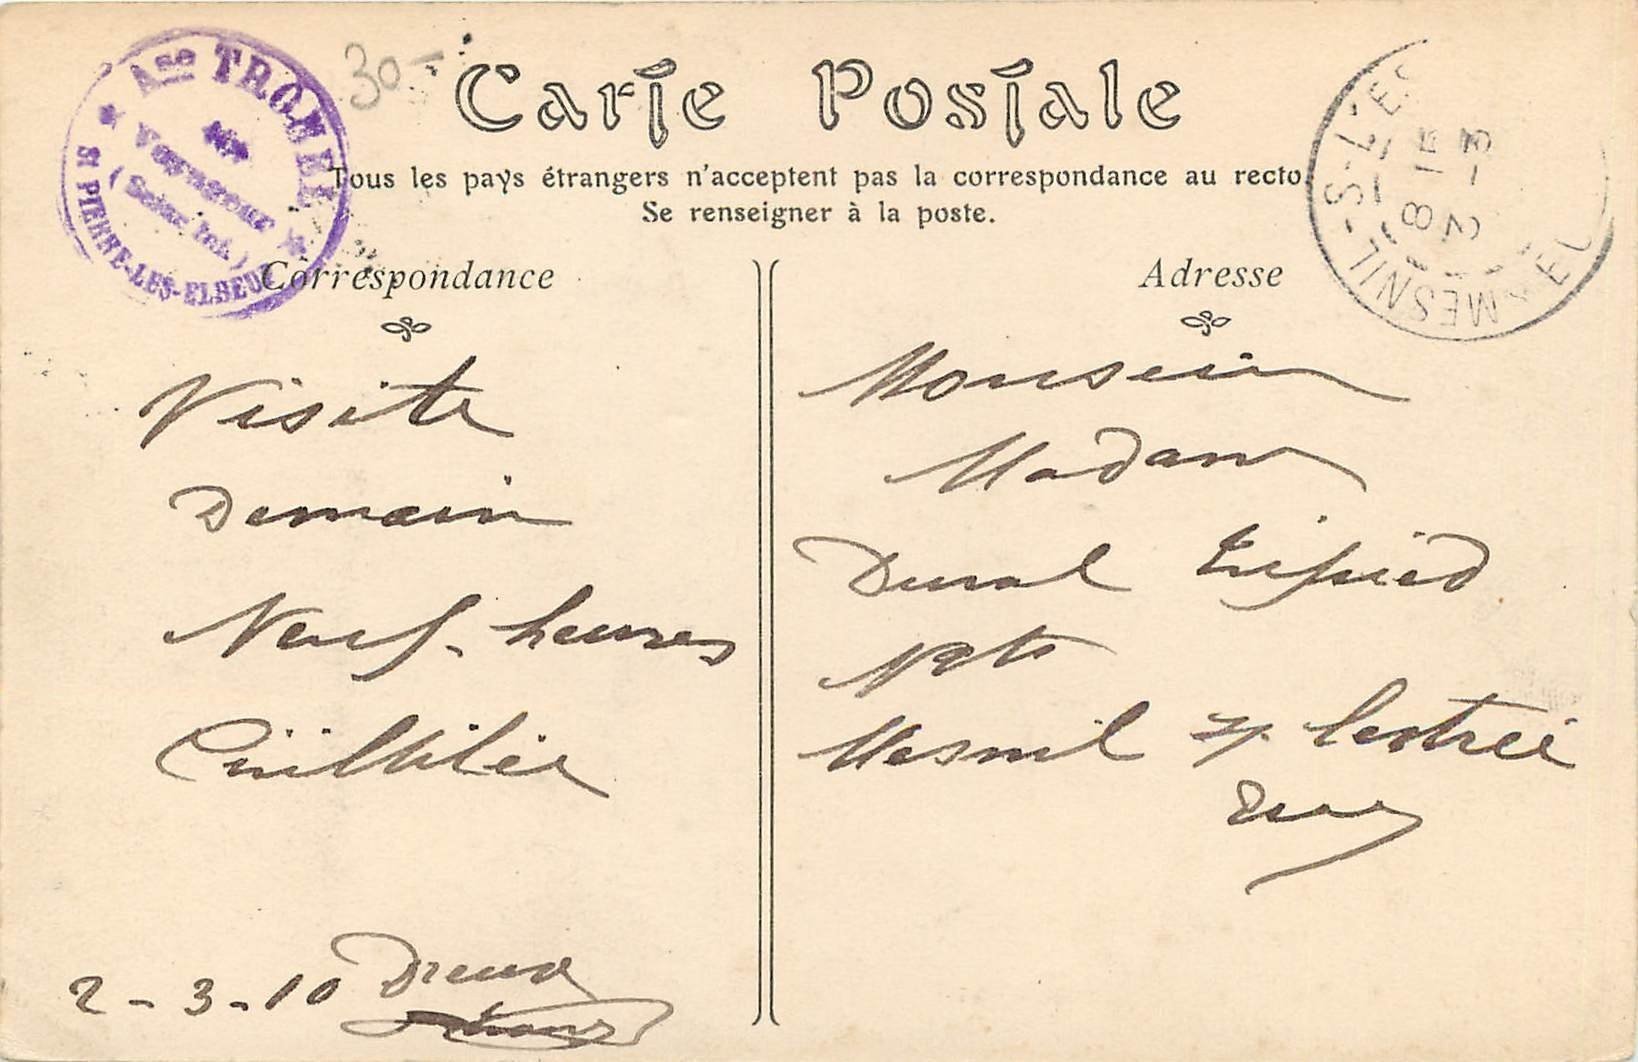 Ase TROMEL
Voyageur
(Seine Inf.)
St PIERRE-LES-ELBEUF
30-
Carte Postale
Tous les pays étrangers n'acceptent pas la correspondance au recto.
Se renseigner à la poste.
MESNIL-S-L'ES
8 15
2 -3
Correspondance
Visite
Demain
Neuf-heures
2-3-10 Dreux
Adresse
Monsieur
Madame
Duval Tripied
Nts
Mesnil s/ lestrée
Eure